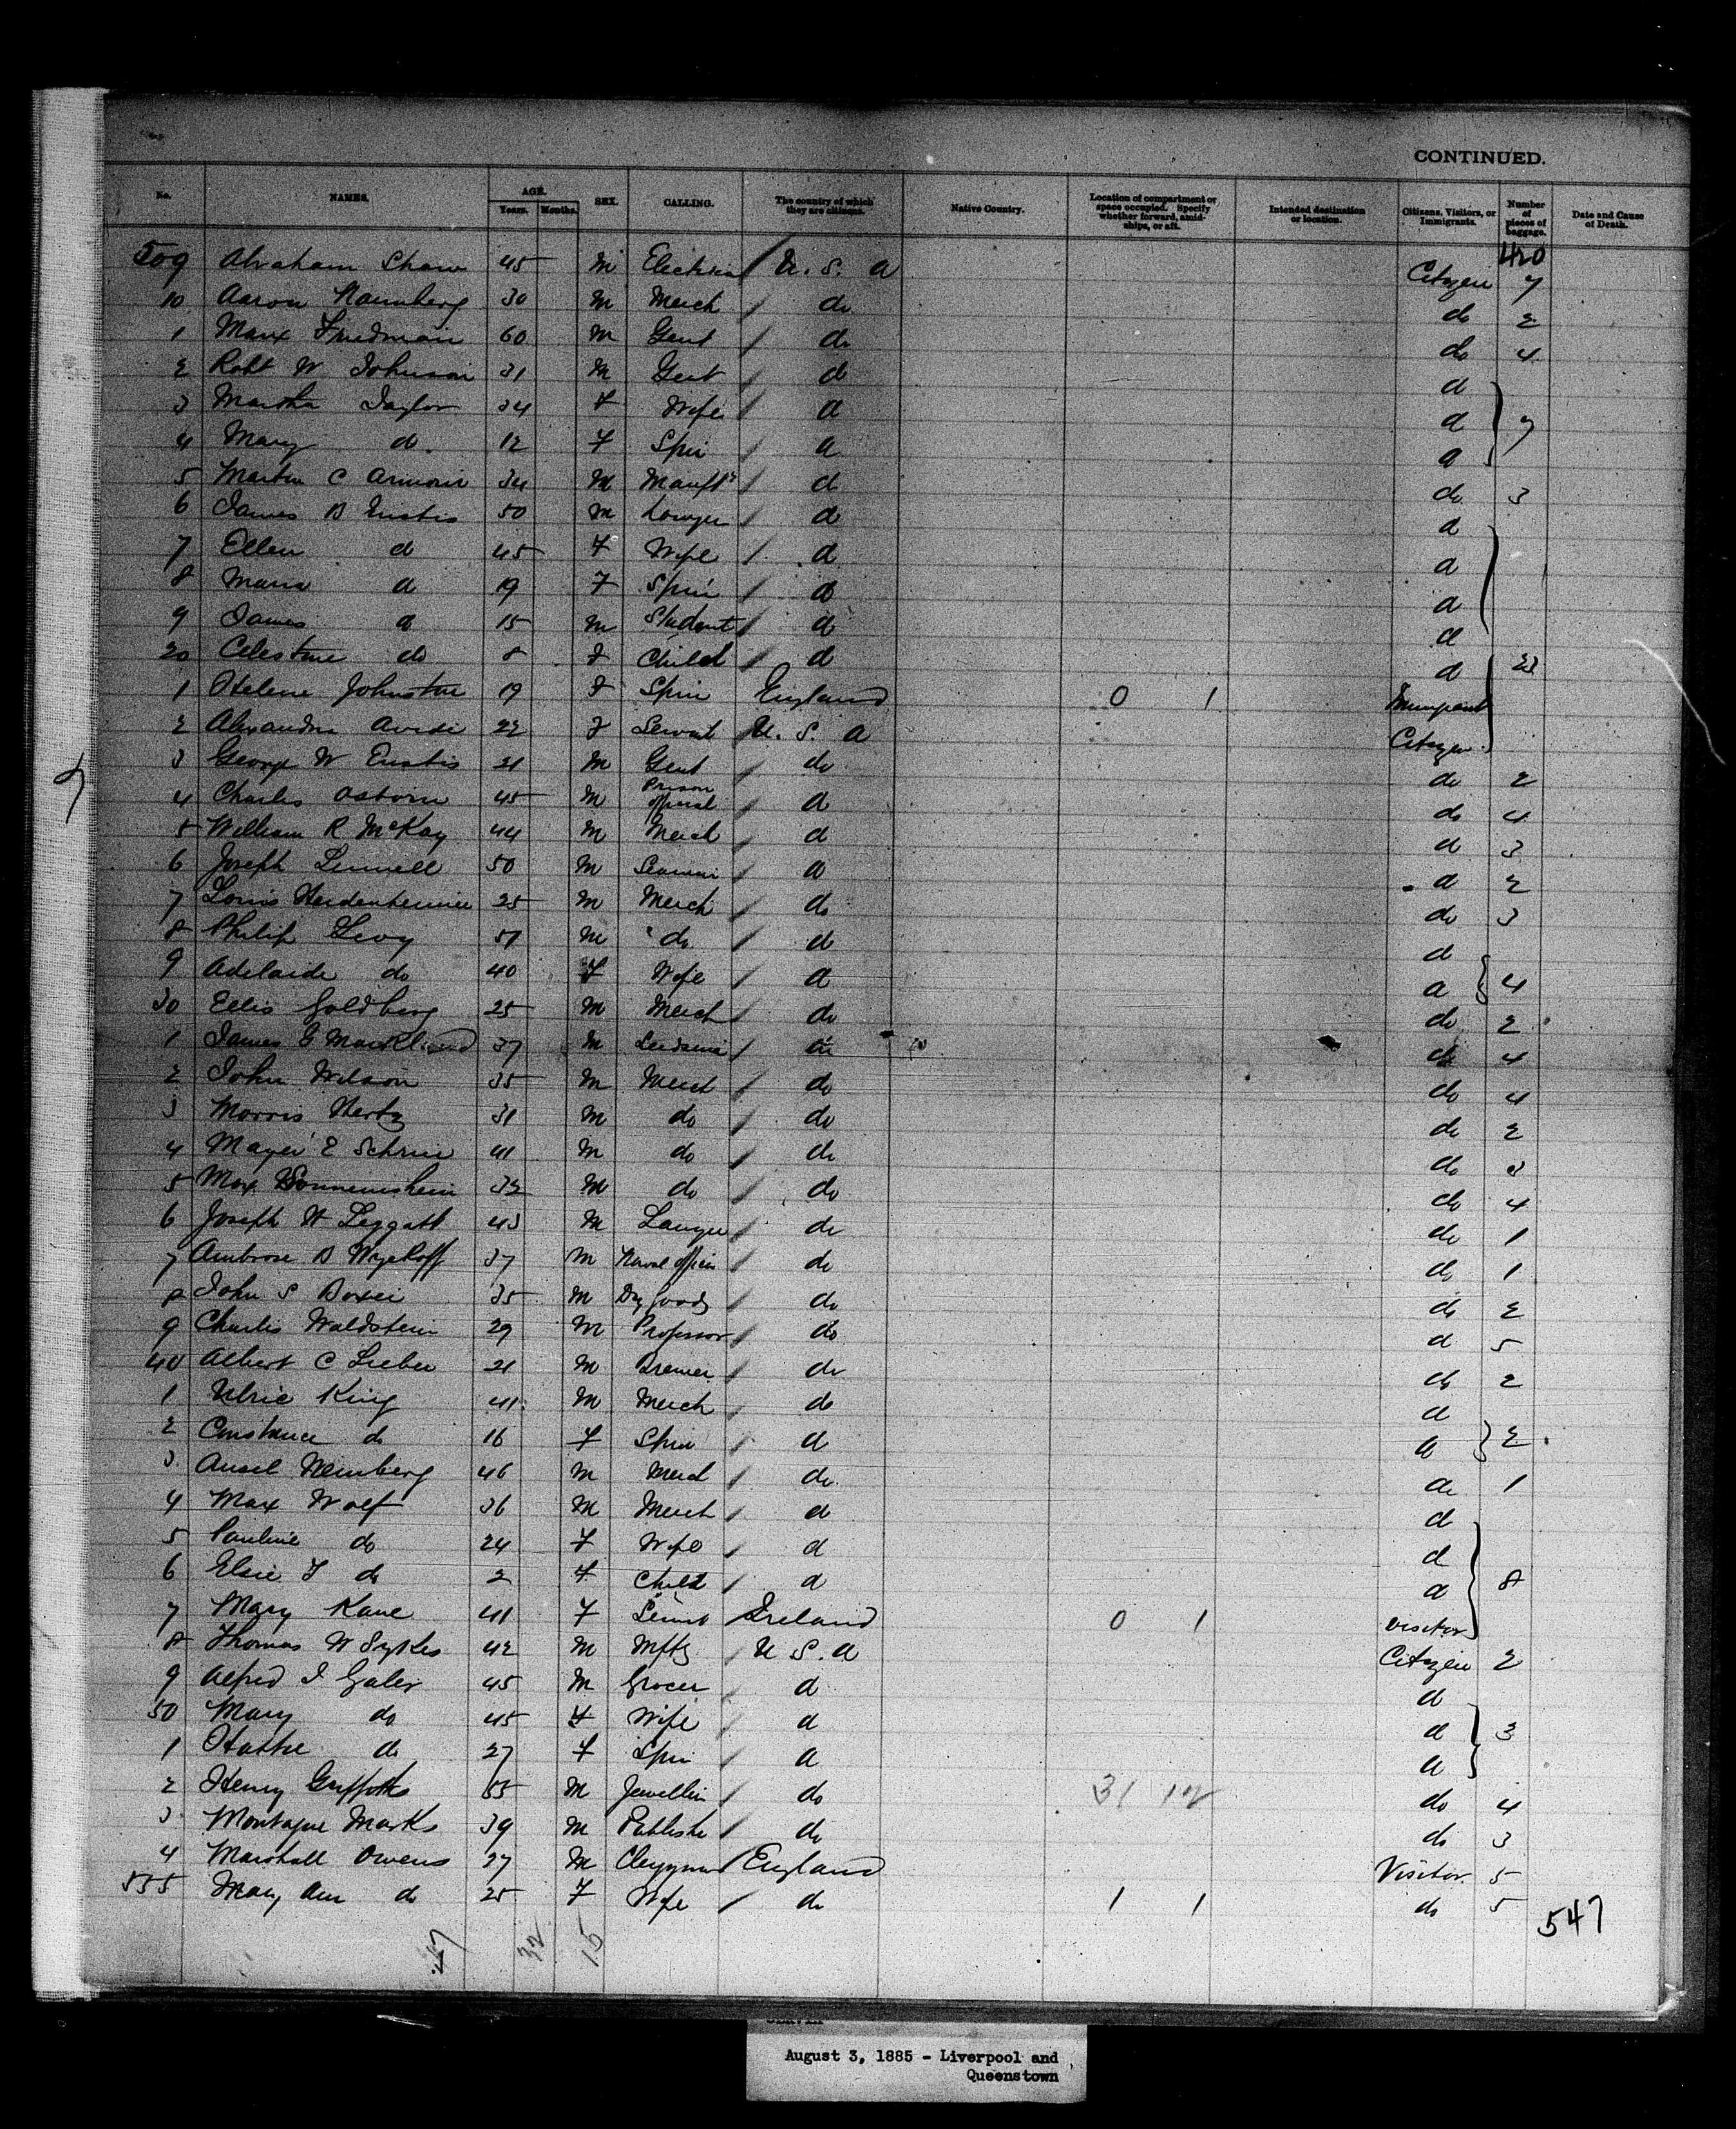 CONTINUED.
No. NAMES. AGE. Years. Months. SEX. CALLING. The country of which they are citizens. Native Country. Location of compartment or space occupied. Specify whether forward, amidships, or aft. Intended destination or location. Citizens, Visitors, or Immigrants. Number of pieces of baggage. Date and Cause of Death.
420
509 Abraham Shaw 45 M U. S. A Citizen 7
10 Aaron 30 M Merch do do 2
1 Marx Friedman 60 M Gent do do 4
2 Robt W Johnson 31 M Gent d d
3 Martha Taylor 34 F Wife d d 7
4 Mary d 12 F Spin d d
5 Martin C Armour 34 M Manftr d do 3
6 James B Eustis 50 M Lawyer d d
7 Ellen d 45 F Wife d d
8 Maria d 19 F Spin d d
9 James d 15 M Student d d
20 Celestine do 8 F Child d d 23
1 Helene Johnstone 19 F Spin England 0 1 Immigrant
2 Alexandra 22 F Servant U. S. A Citizen
3 George W Eustis 21 M Gent do do 2
4 Charles Osborn 45 M Prison official d do 4
5 William R McKay 44 M Merch d d 3
6 Joseph 50 M d d 2
7 Louis 25 M Merch do do 3
8 Philip Levy 51 M do d d
9 Adelaide do 40 F Wife d d 4
30 Ellis Goldberg 25 M Merch do do 2
1 James G 37 M do do 4
2 John Wilson 35 M Merch do do 4
3 Morris Hertz 31 M do do do 2
4 Mayer E 41 M do do do 3
5 Max 32 M do do do 4
6 Joseph H Leggatt 43 M Lawyer do do 1
7 Ambrose B Wyckoff 37 M Naval officer do do 1
8 John S 35 M Dry Goods do do 2
9 Charles Waldstein 29 M Professor do d 5
40 Albert C Lieber 21 M Brewer do do 2
1 Ulric King 41 M Merch do d
2 Constance do 16 F Spin d d 2
3 Ansel 46 M Merch do do 1
4 Max Wolf 36 M Merch d d
5 Pauline do 24 F Wife d d
6 Elsie F do 2 F Child d d 8
7 Mary Kane 41 F Servt Ireland 0 1 Visitor
8 Thomas W Sykes 42 M U S. A Citizen 2
9 Alfred I 45 M Grocer d d
50 Mary do 45 F Wife d d 3
1 Hattie do 27 F Spin d d
2 Henry Griffiths 55 M Jeweller do 31 12 do 4
3 Montague Marks 39 M Publisher do do 3
4 Marshall Owens 27 M Clergyman England Visitor 5
555 Mary Ann do 25 F Wife do 1 1 do 5
547
47 32 15
August 3, 1885 - Liverpool and
Queenstown